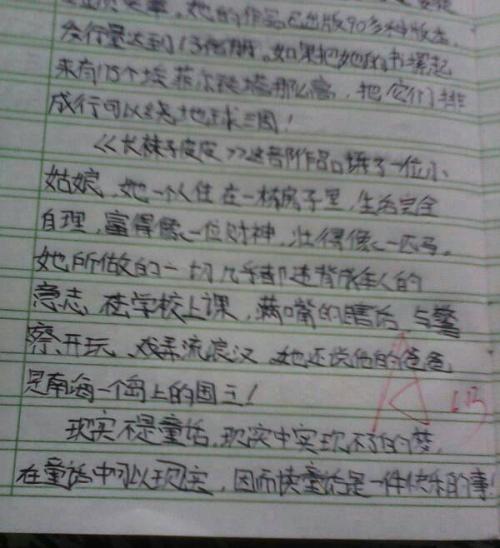 她的作品已出版90多种版本,
发行量达到1.3亿册。如果把她的书摞起
来有175个埃菲尔铁塔那么高,把它们排
成行可以绕地球三周!
《长袜子皮皮》这部作品描了一位小
姑娘,她一个人住在一栋房子里,生活完全
自理,富得像一位财神,壮得像一匹马。
她所做的一切几乎都违背成年人的
意志,在学校上课,满嘴的瞎话,与警
察开玩,戏弄流浪汉,她还说他的爸爸
是南海一个岛上的国王!
现实不是童话,现实中实现不了的梦,
在童话中可以现实,因而读童话是一件快乐的事!